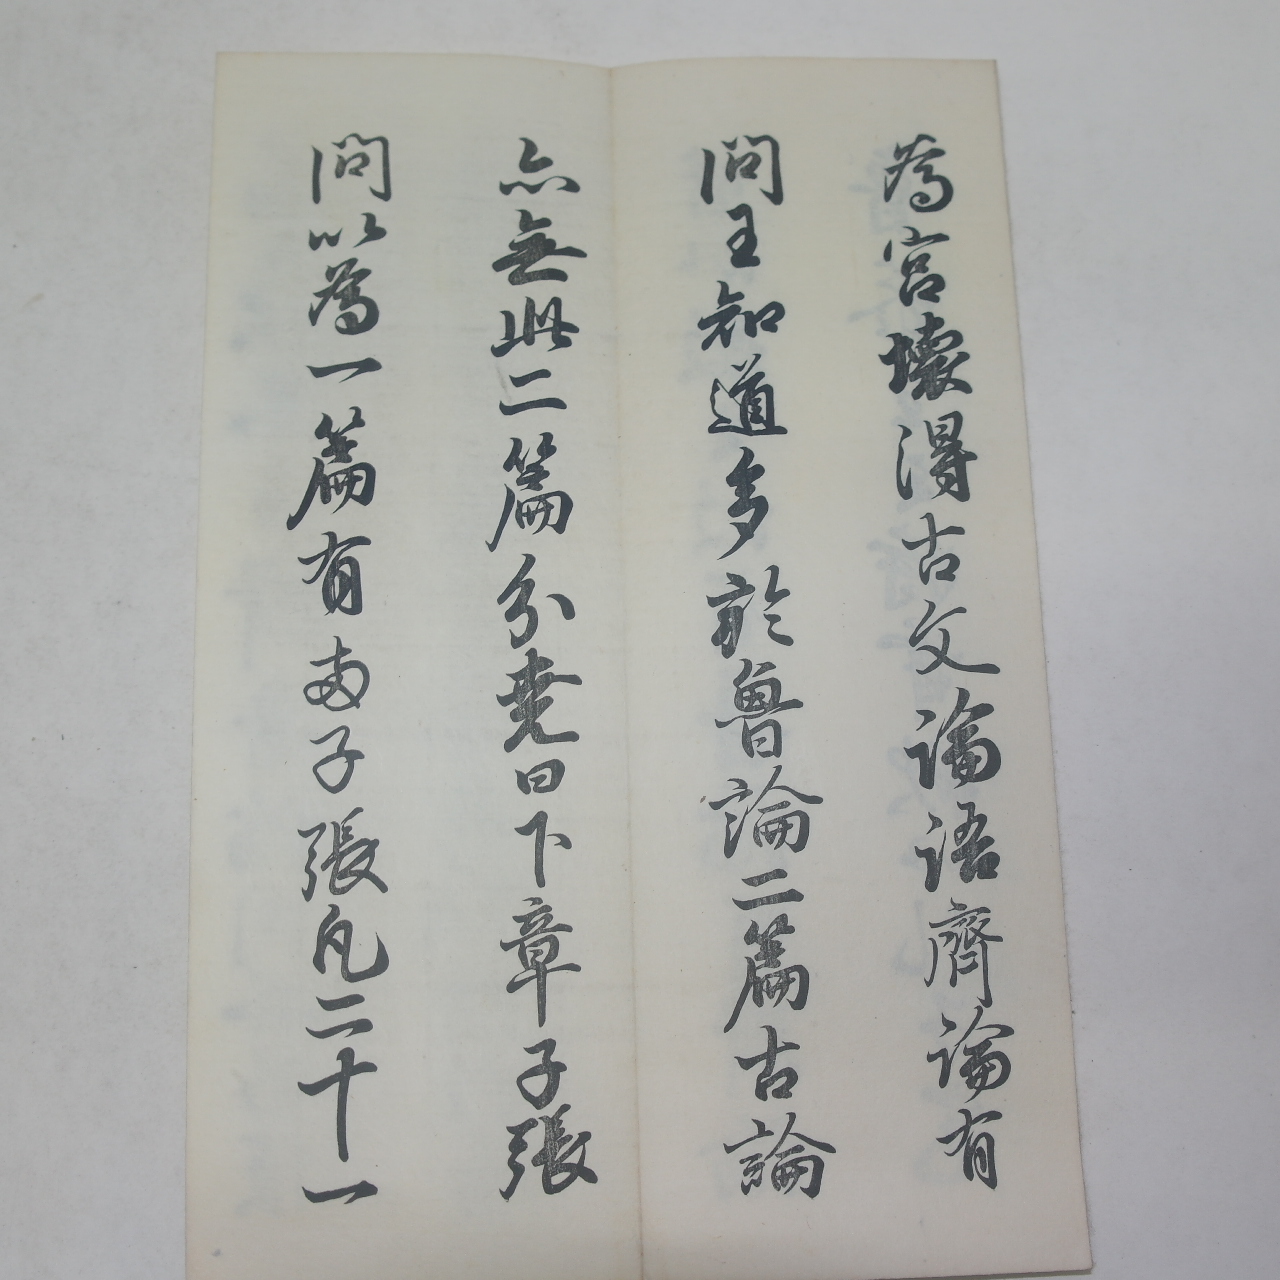 為宮壞得古文論語齊論有
問王知道多於魯論二篇古論
亦無此二篇分堯曰下章子張
問以為一篇有兩子張凡二十一